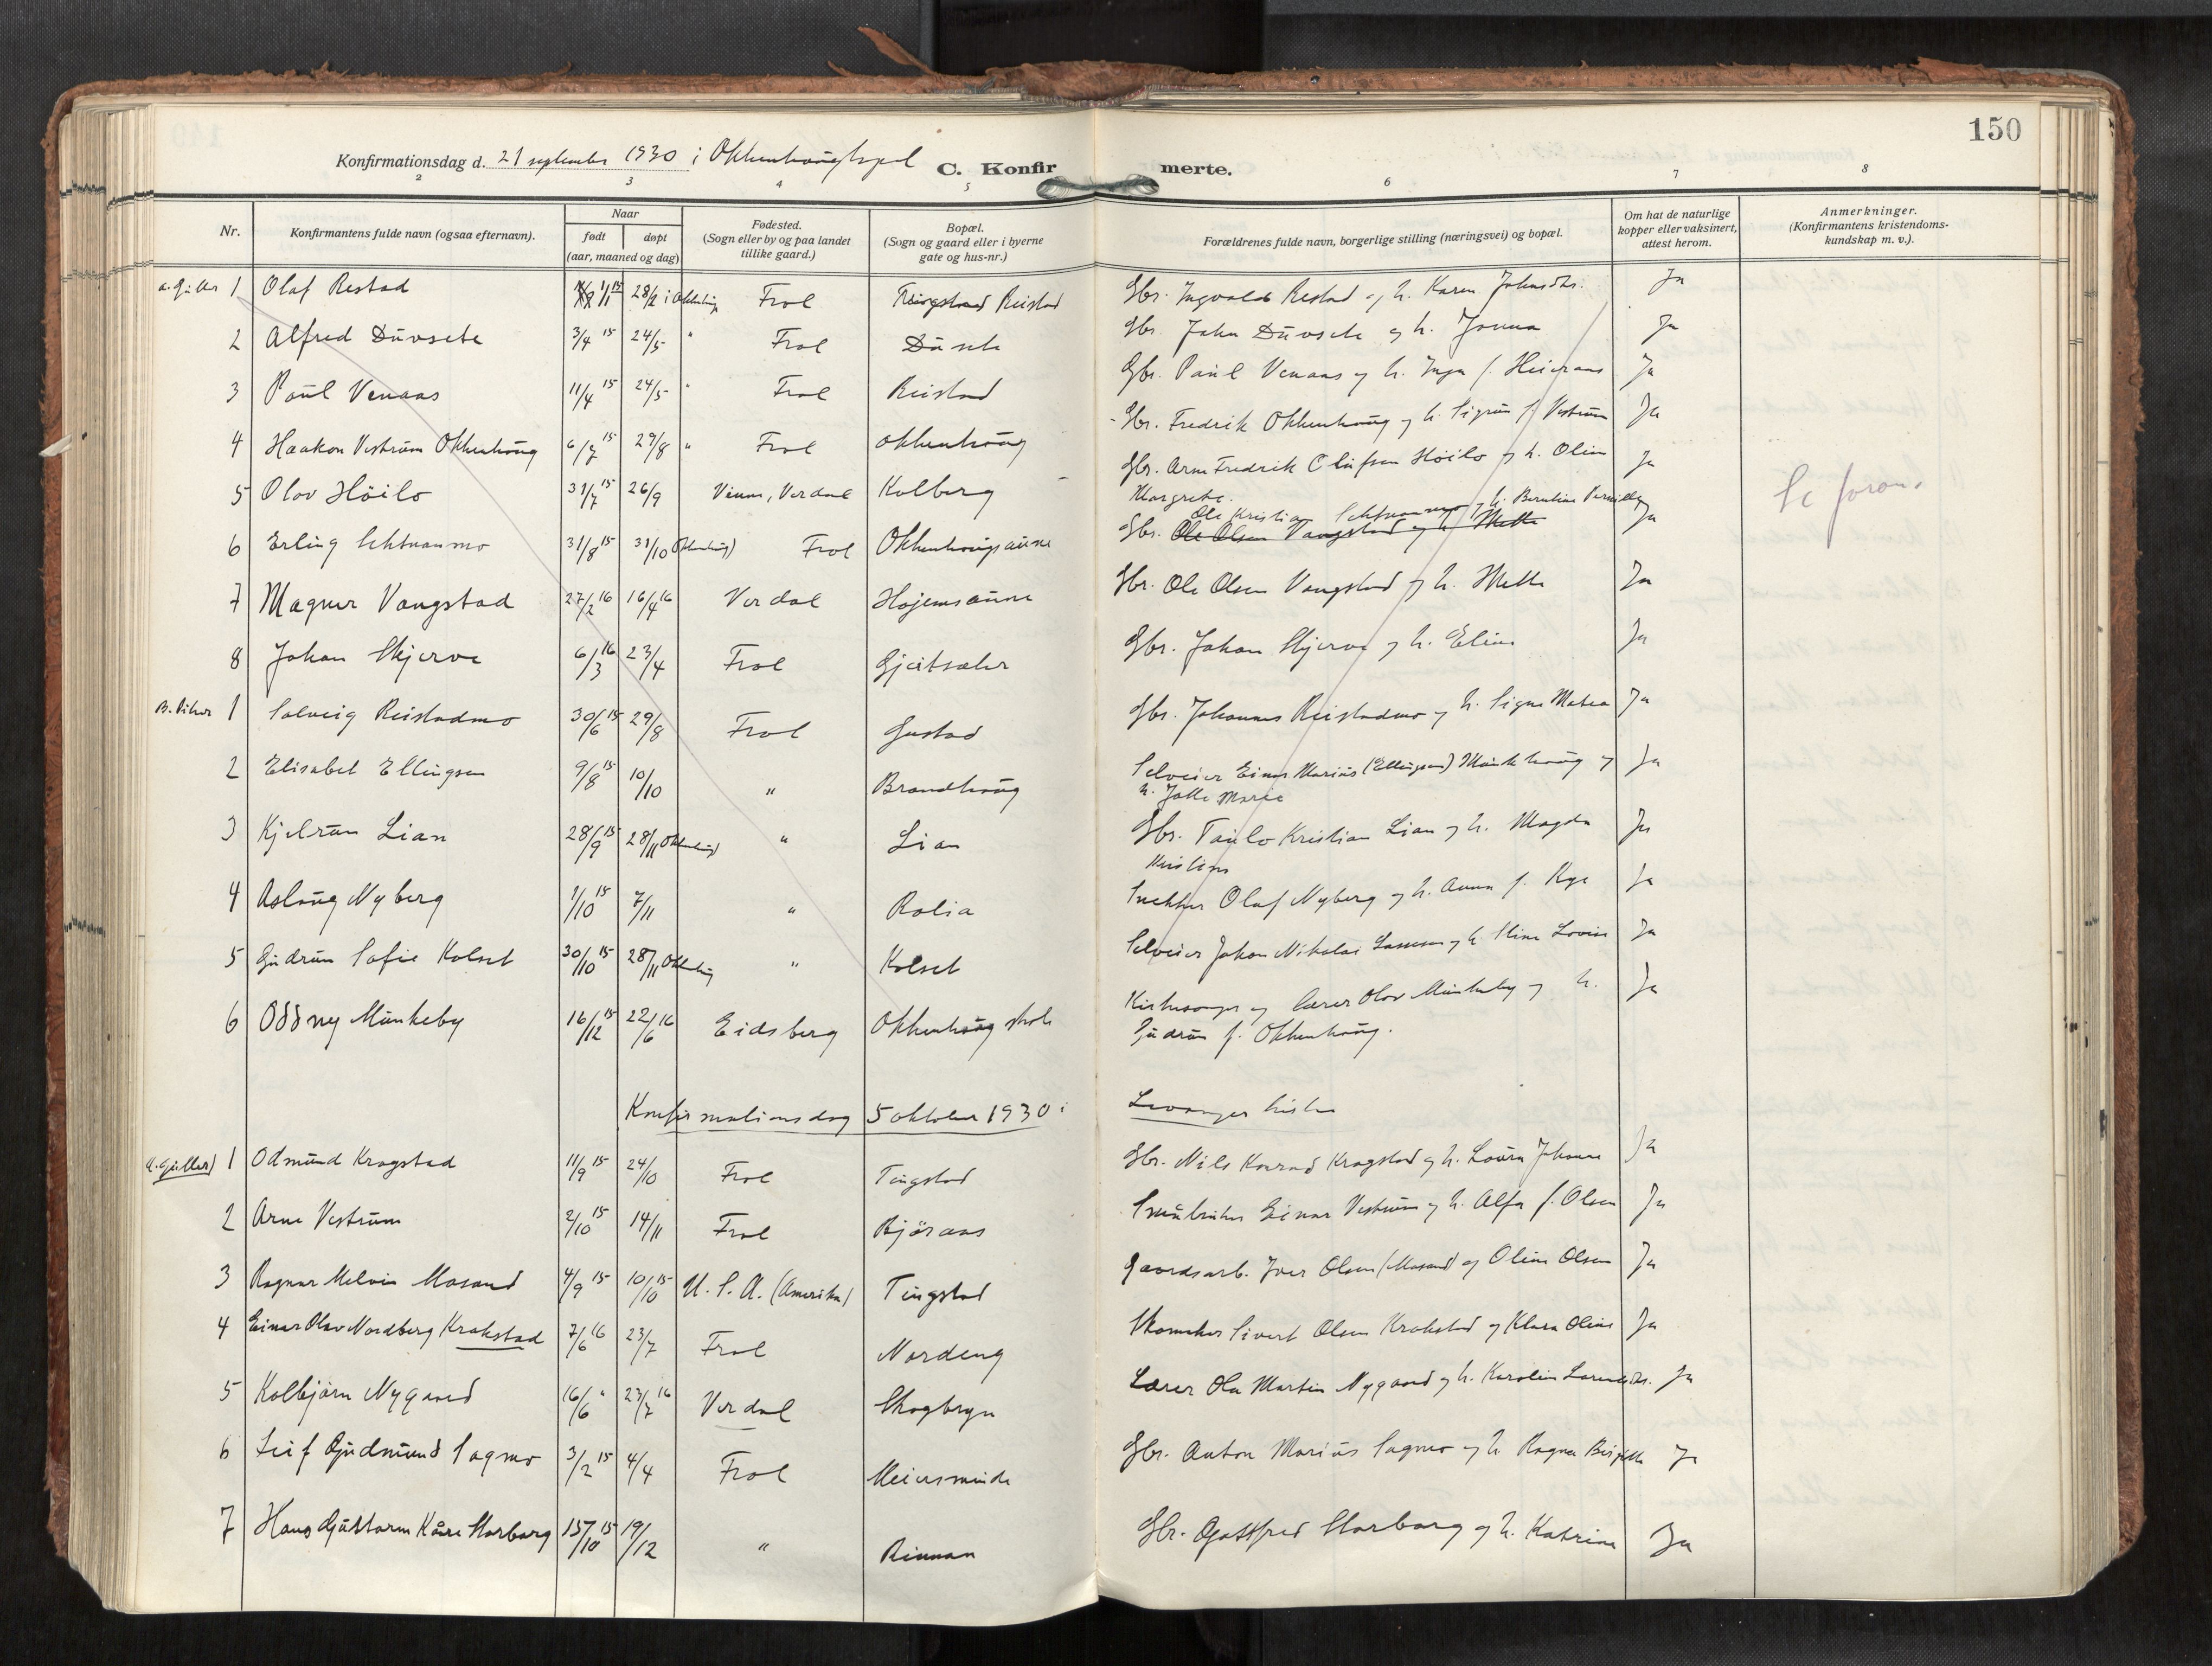 150
Konfirmationsdag d. 21 september 1930 i Okkenhaugkapel C. Konfirmerte.
2 3 4 5 6 7 8
Nr. Konfirmantens fulde navn (ogsaa efternavn). Naar født døpt (aar, maaned og dag) Fødested. (Sogn eller by og paa landet tillike gaard.) Bopæl. (Sogn og gaard eller i byerne gate og hus-nr.) Forældrenes fulde navn, borgerlige stilling (næringsvei) og bopæl. Om hat de naturlige kopper eller vaksinert, attest herom. Anmerkninger. (Konfirmantens kristendoms-kundskap m. v.).
a. Gutter 1 Olaf Restad 1/1 15 28/2 i Frol Reistad Gbr. Ingvald Restad og h. Karen Ja
2 Alfred Duvsete 3/4 15 24/5 " Frol Gbr. John Duvsete og h. Jonna Ja
3 Paul Venaas 11/4 15 24/5 " Frol Reistad Gbr. Paul Venaas og h. Inga f. Heieraas Ja
4 Haakon Vestrum Okkenhaug 6/7 15 29/8 " Frol Okkenhaug Gbr. Fredrik Okkenhaug og h. Sigrun f. Vestrum Ja
5 Olov Høilo 31/7 15 26/9 Vinne, Verdal Kolberg Gbr. Arne Fredrik Olufsen Høilo og h. Oline Margrete. Ja Se foran.
6 Erling Sktvanmo 31/8 15 31/10 Frol Okkenhaugaune Gbr. Ole Olsen Vangstad og h. Mette Ole Kristian og h. Berntine Ja
7 Magner Vangstad 27/2 16 16/4 16 Verdal Hojemsaune Gbr. Ole Olsen Vangstad og h. Mette Ja
8 Johan Skjerve 6/3 16 23/4 Frol Gjeitsæter Gbr. Johan Skjerve og h. Eline Ja
B. Piker 1 Solveig Reistadmo 30/6 15 29/8 Frol Gustad Gbr. Johannes Reistadmo og h. Signe Matea Ja
2 Elisabet Ellingsen 9/8 15 10/10 " Brandhaug Selveier Einar Marius (Ellingsen) Munkhaug og h. Marie Ja
3 Kjelrun Lian 28/9 15 28/11 Okkenhaug " Lian Gbr. Paulo Kristian Lian og h. Magda Ja
4 Aslaug Nyberg 1/10 15 7/11 " Rolia Snekker Olaf Nyberg og h. Anna f. Rye Ja
5 Gudrun Sofie Kolset 30/10 15 28/11 Okkenhaug " Kolset Selveier Johan Nikolai Lassesen og h. Stine Lovise Ja
6 Oddny Munkeby 16/12 15 22/6 16 Eidsberg Okkenhaug skole Kirkesanger og lærer Olov Munkeby og h. Gudrun f. Okkenhaug. Ja
Konfirmationsdag 5 oktober 1930 i Levanger kirke
a. Gutter) 1 Odmund Kragstad 11/9 15 24/10 Frol Tingstad Gbr. Nils Konrad Kragstad og h. Laura Johanne Ja
2 Arne Vestrum 2/10 15 14/11 Frol Bjøraas Småbruker Einar Vestrum og h. Alfa f. Olsen Ja
3 Ragnar Melvin Mosand 4/9 15 10/10 15 U. S. A. (Amerika) Tingstad Gaardsarb. Iver Olsen (Mosand) og Oline Olsen Ja
4 Einar Olav Nordberg Krokstad 7/6 16 23/7 Frol Nordeng Skomaker Sivert Olsen Krokstad og Klara Oline Ja
5 Kolbjørn Nygaard 16/6 " 23/7 16 Verdal Skogbryn Lærer Ole Martin Nygaard og h. Karoline Ja
6 Leif Gudmund Sagmo 3/2 15 4/4 Frol Meiersminde Gbr. Anton Marius Sagmo og h. Ragna Birgitte Ja
7 Hans Guttorm Kåre Storborg 15/10 15 19/12 " Rinnan Gbr. Gottfred Storborg og h. Katrine Ja